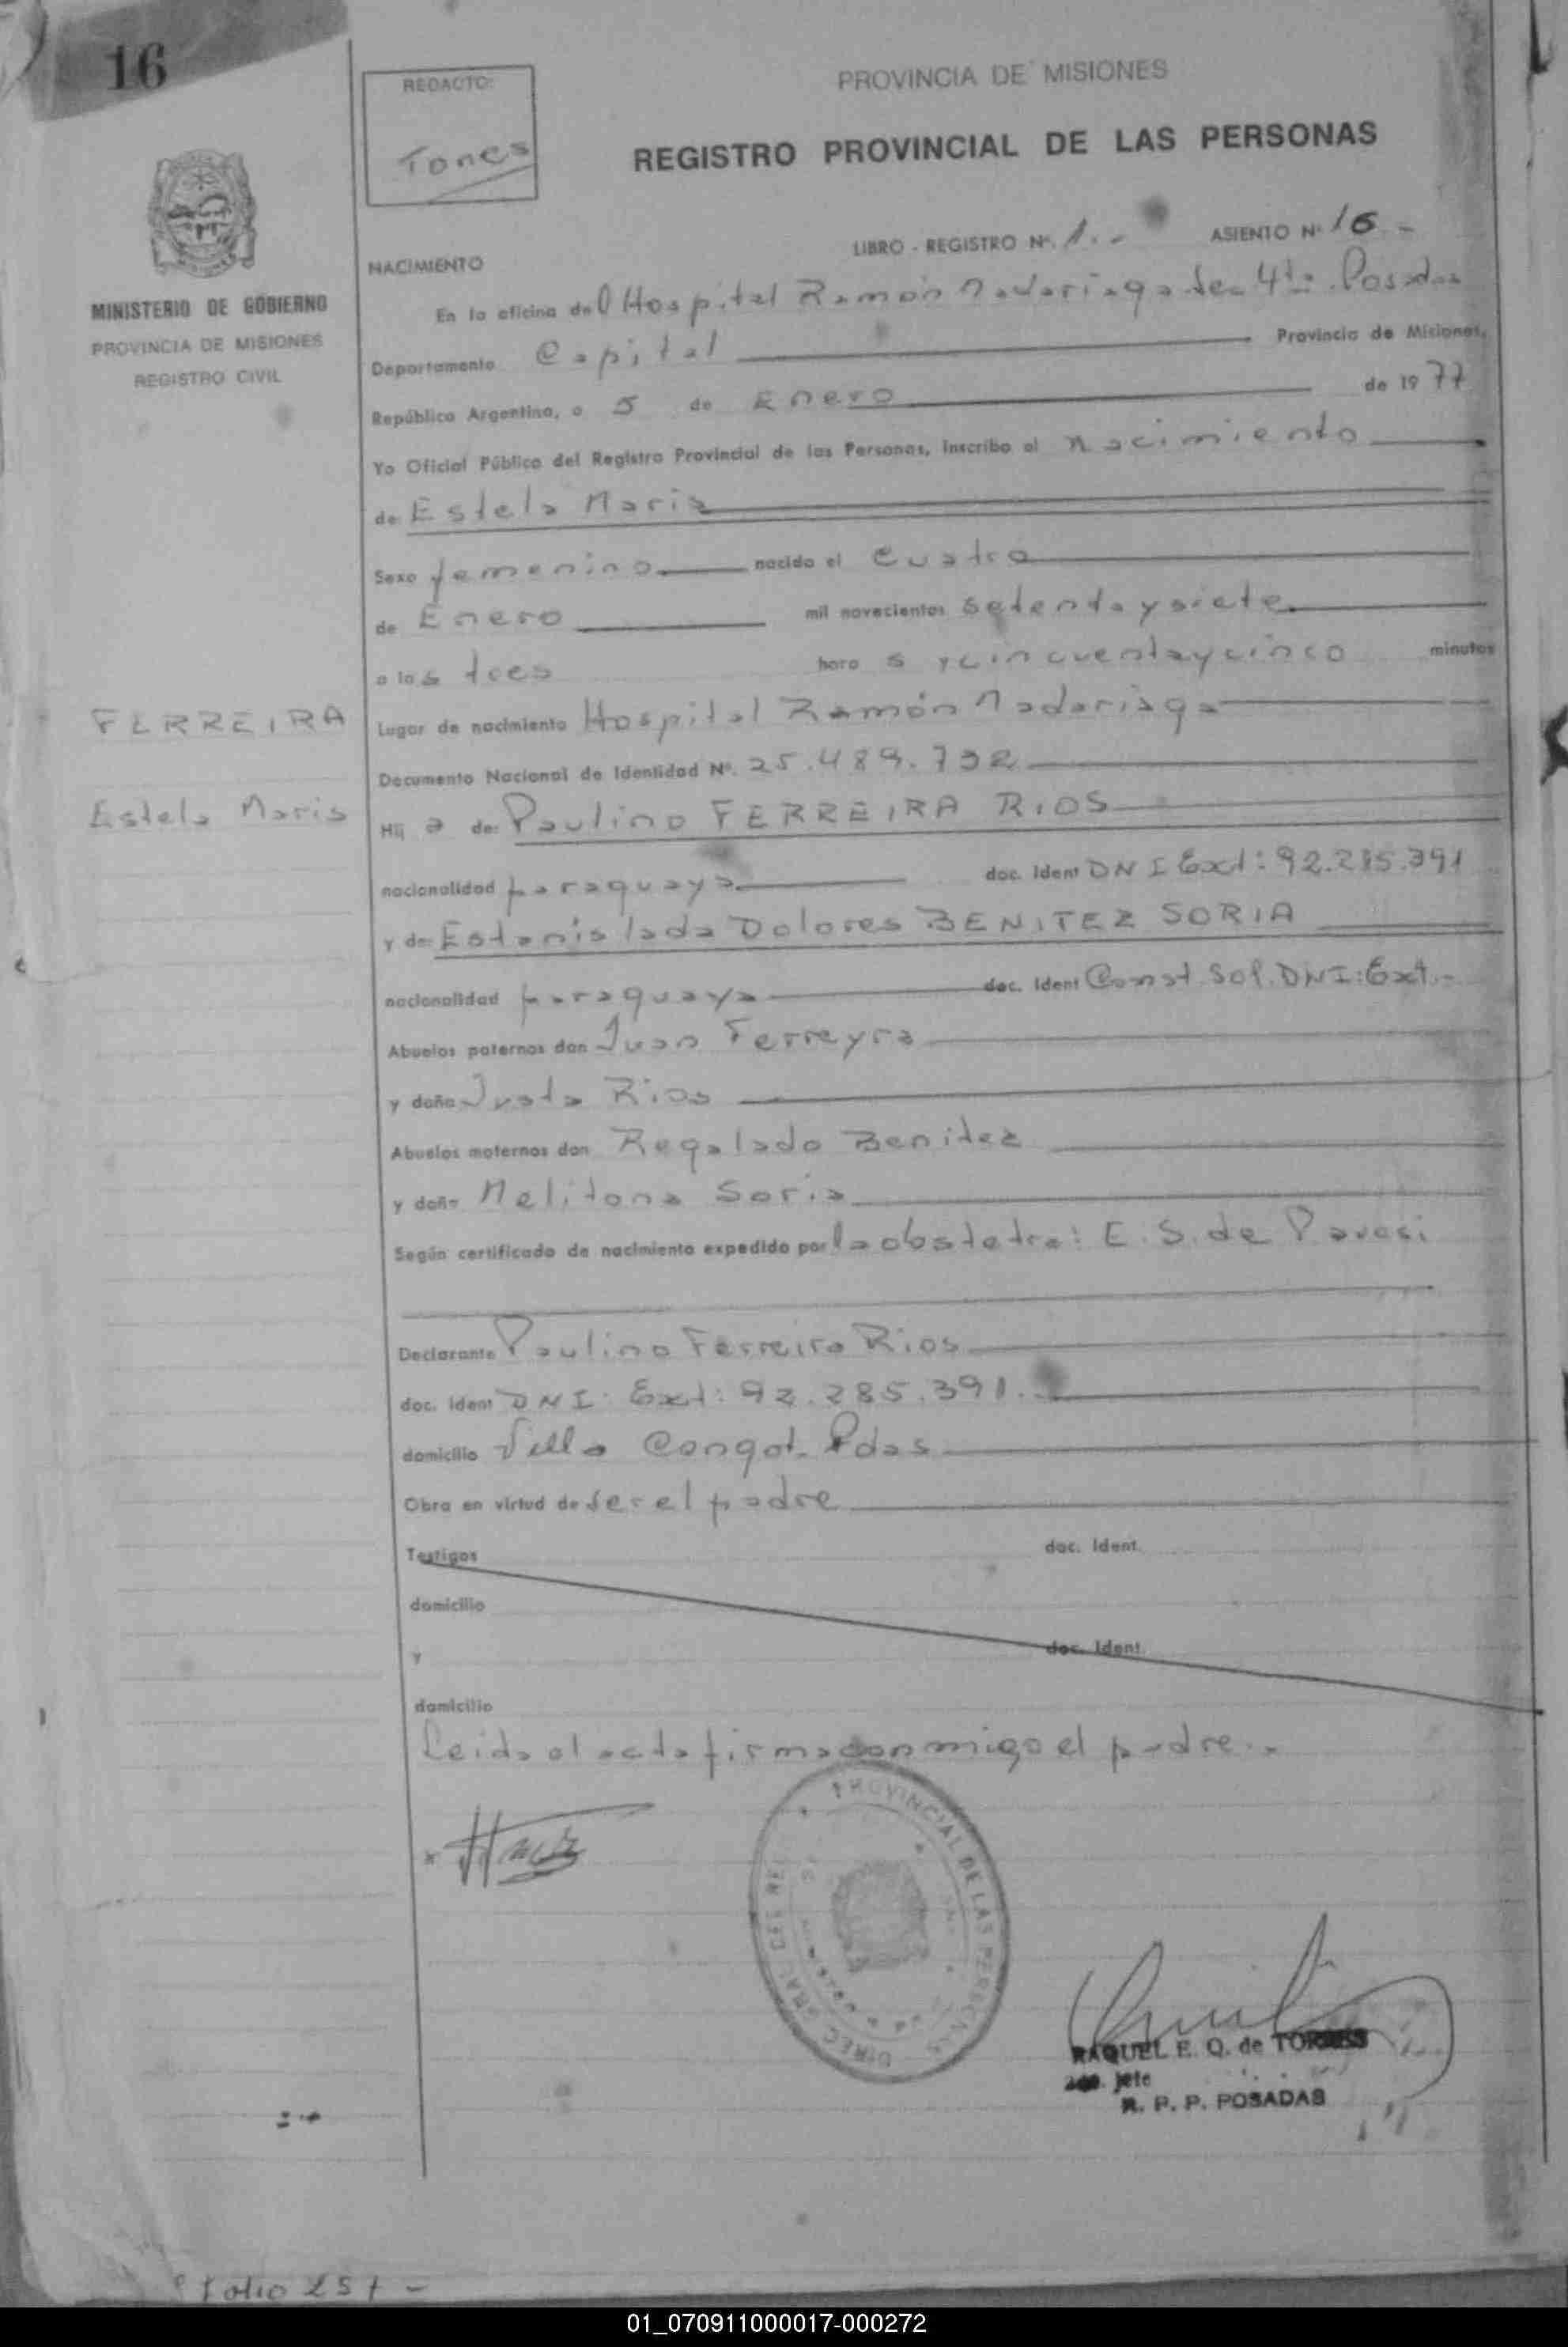 16
REDACTO:
Torres
PROVINCIA DE MISIONES
REGISTRO PROVINCIAL DE LAS PERSONAS
MINISTERIO DE GOBIERNO
PROVINCIA DE MISIONES
REGISTRO CIVIL
LIBRO - REGISTRO Nº. 1.- ASIENTO Nº 16 -
NACIMIENTO
En la oficina del Hospital Ramón Madariaga Sec 4ta Posadas
Departamento Capital Provincia de Misiones,
República Argentina, a 5 de Enero de 1977
Yo Oficial Público del Registro Provincial de las Personas, inscribo el nacimiento
de Estela Maris
Sexo femenino nacido el cuatro
de Enero mil novecientos setenta y siete
a las tres hora s y cincuenta y cinco minutos
FERREIRA
Lugar de nacimiento Hospital Ramón Madariaga
Documento Nacional de Identidad Nº. 25.489.732
Estela Maris
Hij a de: Paulino FERREIRA RIOS
nacionalidad paraguaya doc. Ident DNI Ext: 92.285.391
y de: Estanislada Dolores BENITEZ SORIA
nacionalidad paraguaya doc. Ident Const. Sol. DNI: Ext.-
Abuelos paternos don Juan Ferreyra
y doña Justa Rios
Abuelos maternos don Regalado Benitez
y doña Melitona Soria
Según certificado de nacimiento expedido por la obstetra: E. S. de Pavesi
Declarante Paulino Ferreira Rios
doc. Ident DNI: Ext: 92.285.391.
domicilio Villa Pdas
Obra en virtud de ser el padre
Testigos doc. Ident.
domicilio
y doc. Ident.
domicilio
Leida el acta firma conmigo el padre.-
PROVINCIAL DE LAS PERSONAS
DIREC GRAL DEL REG
RAQUEL E. Q. de TORRES
Jefe
R. P. P. POSADAS
Folio 257 -
01_070911000017-000272